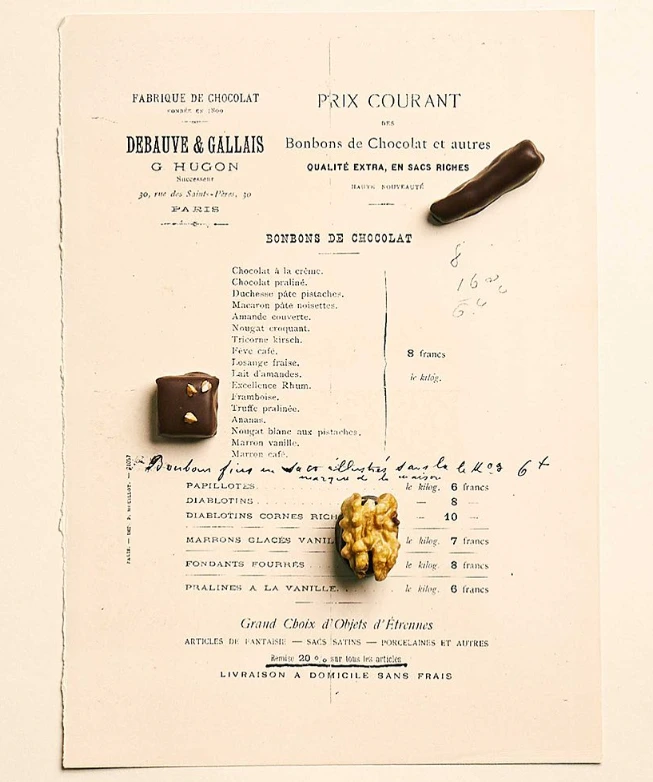 FABRIQUE DE CHOCOLAT
FONDÉE EN 1800
DEBAUVE & GALLAIS
G. HUGON
Successeur
30, rue des Saints-Pères, 30
PARIS
PRIX COURANT
DES
Bonbons de Chocolat et autres
QUALITÉ EXTRA, EN SACS RICHES
HAUTE NOUVEAUTÉ
BONBONS DE CHOCOLAT
8
Chocolat à la crême.
Chocolat praliné.
Duchesse pâte pistaches.
Macaron pâte noisettes.
Amande couverte.
Nougat croquant.
Tricorne kirsch.
Fève café.
Losange fraise.
Lait d'amandes.
Excellence Rhum.
Framboise.
Truffe pralinée.
Ananas.
Nougat blanc aux pistaches.
Marron vanille.
Marron café.
8 francs
le kilog.
Bonbons fins en sacs illustrés dans la le K
marque de la maison
PAPILLOTES le kilog. 6 francs
DIABLOTINS — 8 —
DIABLOTINS CORNES — 10 —
MARRONS GLACÉS le kilog. 7 francs
FONDANTS FOURRÉS le kilog. 8 francs
PRALINES A LA VANILLE le kilog. 6 francs
Grand Choix d'Objets d'Étrennes
ARTICLES DE FANTAISIE — SACS SATINS — PORCELAINES ET AUTRES
Remise 20 % sur tous les articles
LIVRAISON A DOMICILE SANS FRAIS